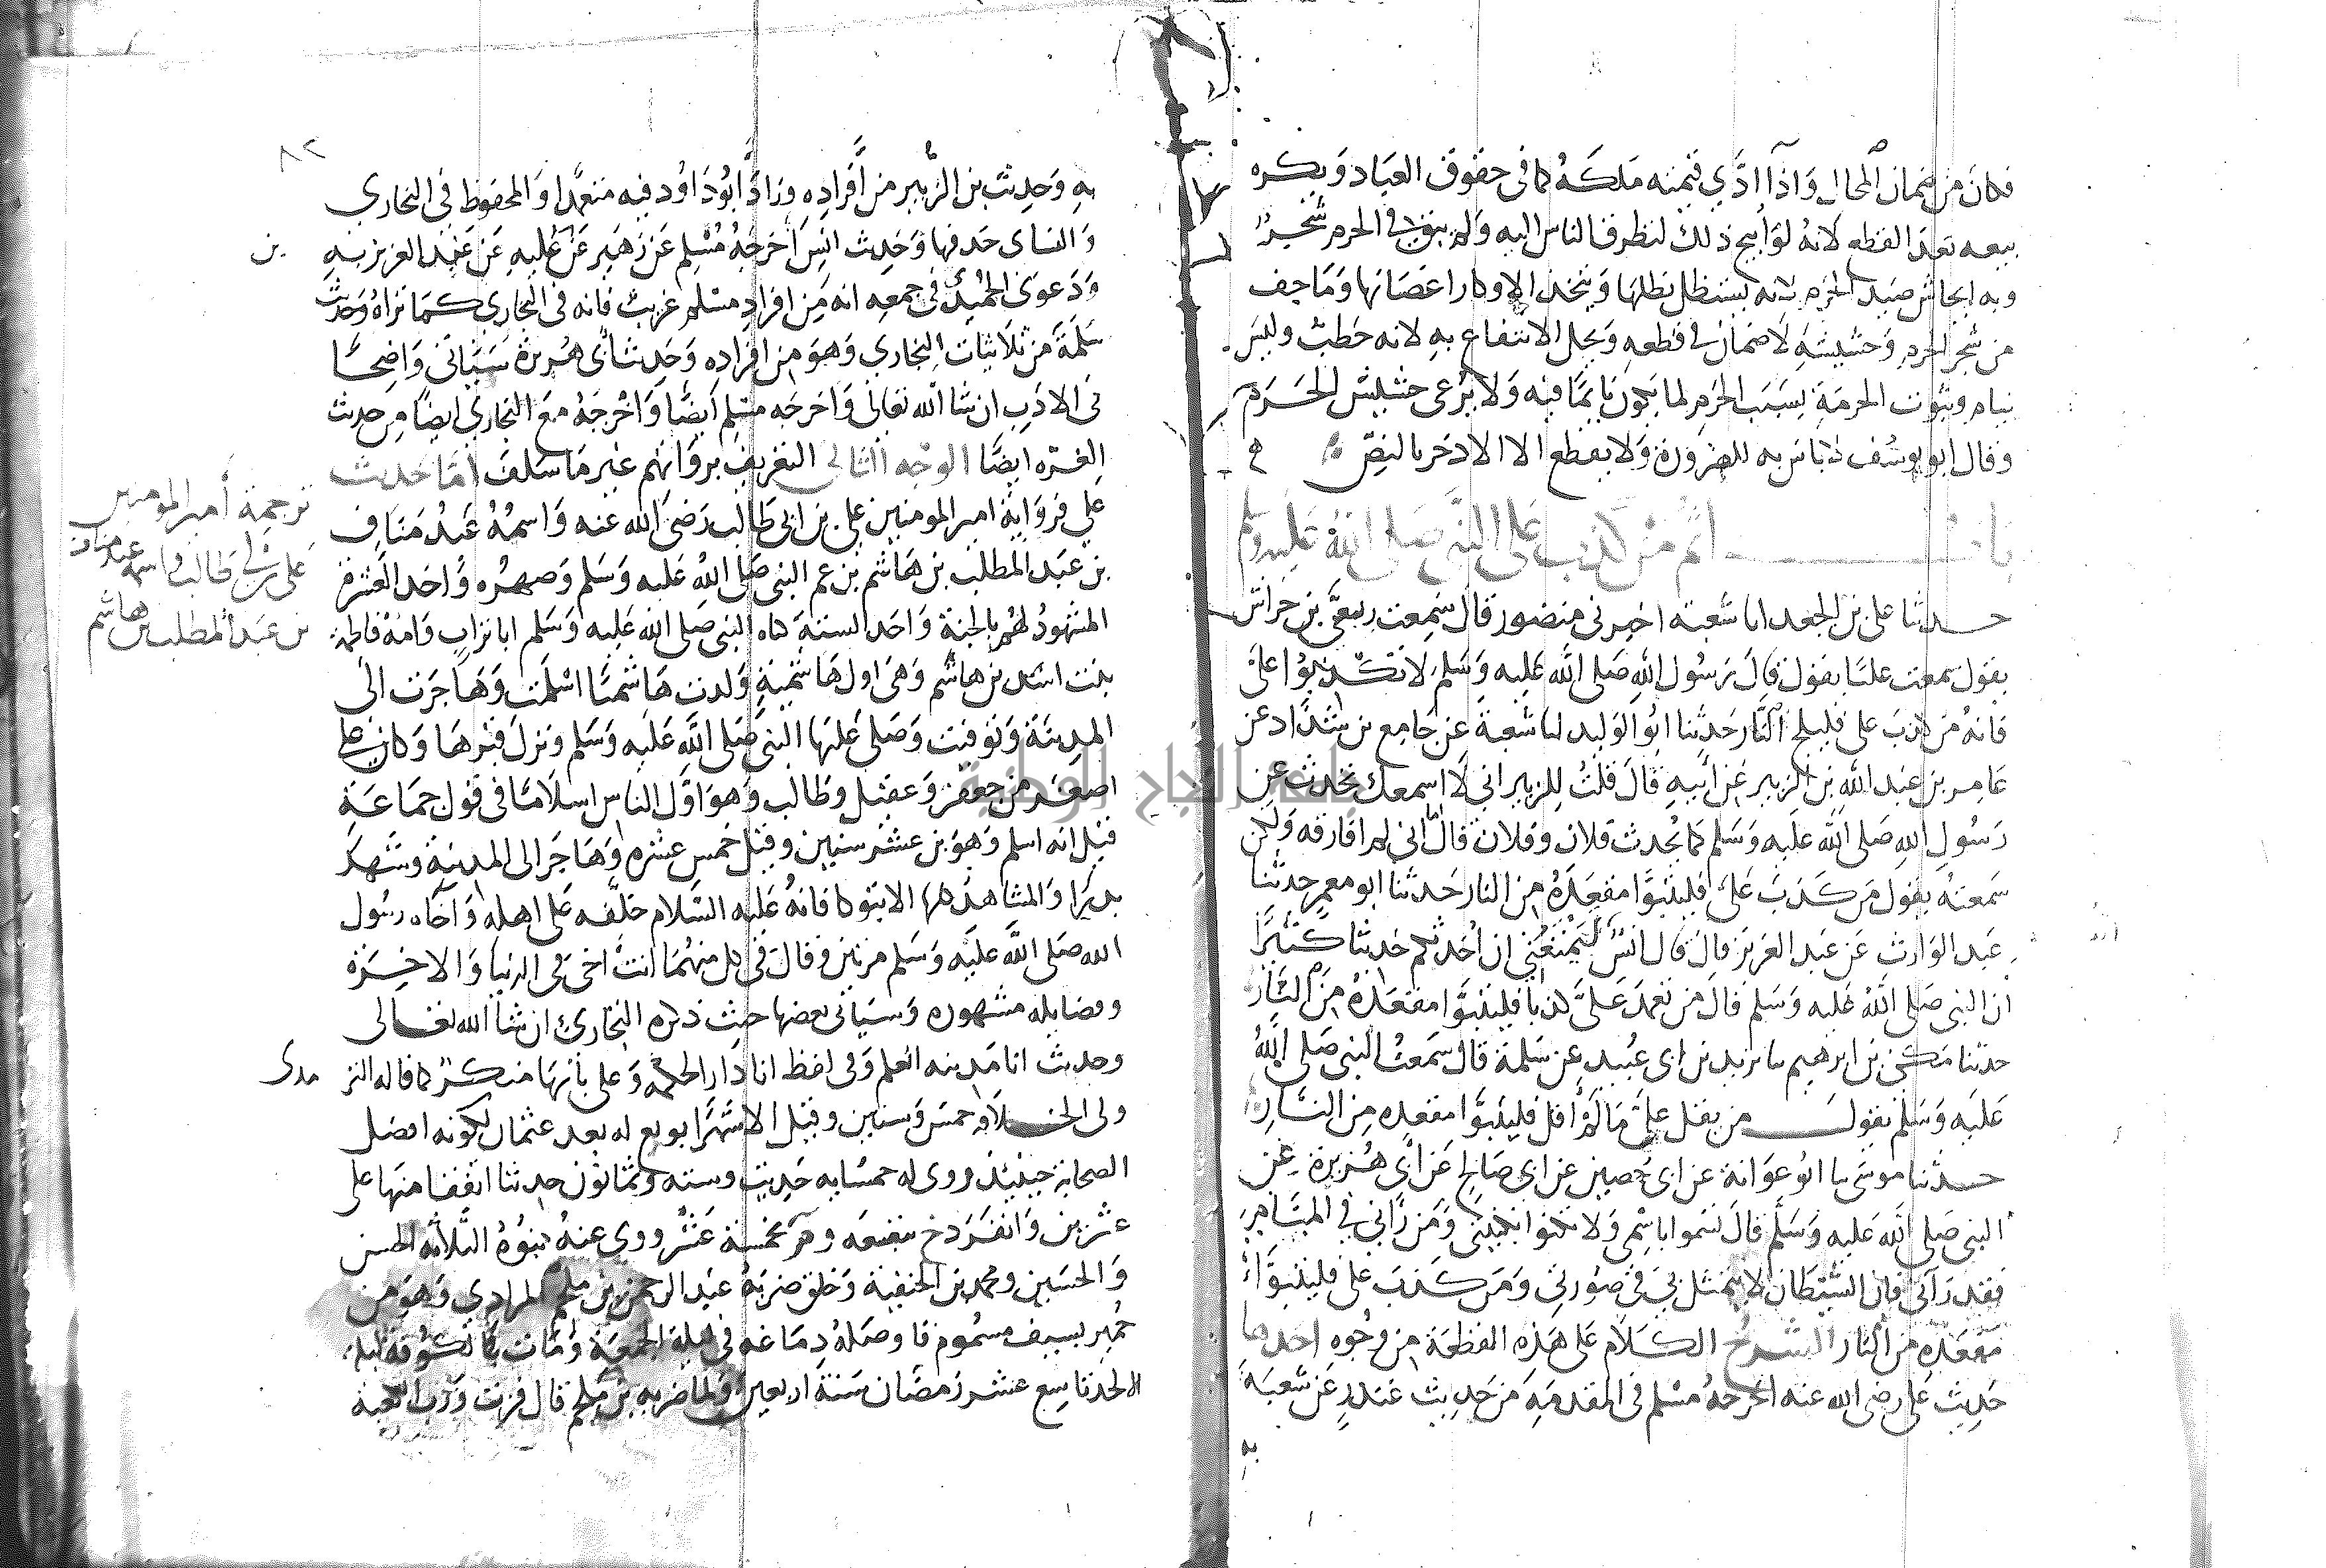 فكان من ضمان المحال واذا ادي قيمته ملكه كما في حقوق العباد ويكره
بيعه بعد القطع لانه لو ابيح ذلك لتطرق الناس اليه ولم يبق في الحرم شجر
وبه ايحاش صيد الحرم لانه يستظل بظلها ويتخذ الاوكار اغصانها وما جف
من شجر الحرم وحشيشه لا ضمان في قطعه ويحل الانتفاع به لانه حطب وليس
بنام وثبوت الحرمة بسبب الحرم لما يكون ناميا فيه ولا يرعى حشيش الحرم
وقال ابو يوسف لا باس به للضرورة ولا يقطع الا الاذخر بالنص
باب اثم من كذب على النبي صلى الله عليه وسلم
حدثنا علي بن الجعد انا شعبة اخبرني منصور قال سمعت ربعي بن حراش
يقول سمعت عليا يقول قال رسول الله صلى الله عليه وسلم لا تكذبوا علي
فانه من كذب علي فليلج النار حدثنا ابو الوليد ثنا شعبة عن جامع بن شداد عن
عامر بن عبد الله بن الزبير عن ابيه قال قلت للزبير اني لا اسمعك تحدث عن
رسول الله صلى الله عليه وسلم كما يحدث فلان وفلان قال اني لم افارقه ولكن
سمعته يقول من كذب علي فليتبوا مقعده من النار حدثنا ابو معمر حدثنا
عبد الوارث عن عبد العزيز قال قال انس ليمنعني ان احدثكم حديثا كثيرا
ان النبي صلى الله عليه وسلم قال من تعمد علي كذبا فليتبوا مقعده من النار
حدثنا مكي بن ابرهيم ثنا يزيد بن ابي عبيد عن سلمة قال سمعت النبي صلى الله
عليه وسلم يقول من يقل علي ما لم اقل فليتبوا مقعده من النار
حدثنا موسى ثنا ابو عوانة عن ابي حصين عن ابي صالح عن ابي هريرة عن
النبي صلى الله عليه وسلم قال تسموا باسمي ولا تكنوا بكنيتي ومن راني في المنام
فقد رآني فان الشيطان لا يتمثل بي في صورتي ومن كذب علي فليتبوا
مقعده من النار الشرح الكلام على هذه القطعة من وجوه احدها
حديث علي رضي الله عنه اخرجه مسلم في المقدمة من حديث غندر عن شعبة
به
٨٢
به وحديث بن الزبير من افراده وزاد ابو داود فيه متعمدا والمحفوظ في البخاري
والنساي حذفها وحديث انس اخرجه مسلم عن زهير عن علية عن عبد العزيز به
بن
ودعوى الحميدي في جمعه انه من افراد مسلم غريب فانه في البخاري كما تراه وحديث
سلمة من ثلاثيات البخاري وهو من افراده وحديث ابي هريرة سياتي واضحا
في الادب ان شا الله تعالى واخرجه مسلم ايضا واخرجه مع البخاري ايضا من حديث
المغيره ايضا الوجه الثاني التعريف برواتهم غير ما سلف اما حديث
علي فرواية امير المومنين علي بن ابي طالب رضي الله عنه واسمه عبد مناف
بن عبد المطلب بن هاشم بن عم النبي صلى الله عليه وسلم وصهره واحد العشرة
ترجمة أمير المومنين
علي بن ابي طالب واسمه عبد مناف
بن عبد المطلب بن هاشم
المشهود لهم بالجنة واحد الستة كناه النبي صلى الله عليه وسلم ابا تراب وامه فاطمة
بنت اسد بن هاشم وهي اول هاشمية ولدت هاشميا اسلمت وهاجرت الى
المدينة وتوفيت وصلى عليها النبي صلى الله عليه وسلم ونزل قبرها وكان علي
اصغر من جعفر وعقيل وطالب وهو اول الناس اسلاما في قول جماعة
قيل انه اسلم وهو بن عشر سنين وقيل خمس عشره وهاجر الى المدينة وشهد
بدرا والمشاهد كلها الا تبوكا فانه عليه السلام خلفه على اهله وآخاه رسول
الله صلى الله عليه وسلم مرتين وقال في كل منهما انت اخي في الدنيا والاخرة
وفضايله مشهوره وسياتي بعضها حيث ذكره البخاري ان شا الله تعالى
وحديث انا مدينة العلم وفي لفظ انا دار الحكمه وعلي بابها منكر كما قاله التر
مدى
ولي الخلافة خمس سنين وقيل الا شهرا بويع له بعد عثمان لكونه افضل
الصحابة حينئذ روى له خمسمايه حديث وستة وثمانون حديثا اتفقا منها على
عشرين وانفرد خ بتسعه وم بخمسة عشر روى عنه بنوه الثلاثة الحسن
والحسين ومحمد بن الحنفية وخلق ضربه عبد الرحمن بن ملجم المرادي وهو من
حمير بسيف مسموم فاوصله دماغه في ليلة الجمعة ومات بالكوفة ليلة
الاحد تاسع عشر رمضان سنة اربعين ولما ضربه بن ملجم قال فزت ورب الكعبة
جامعة النجاح الوطنية